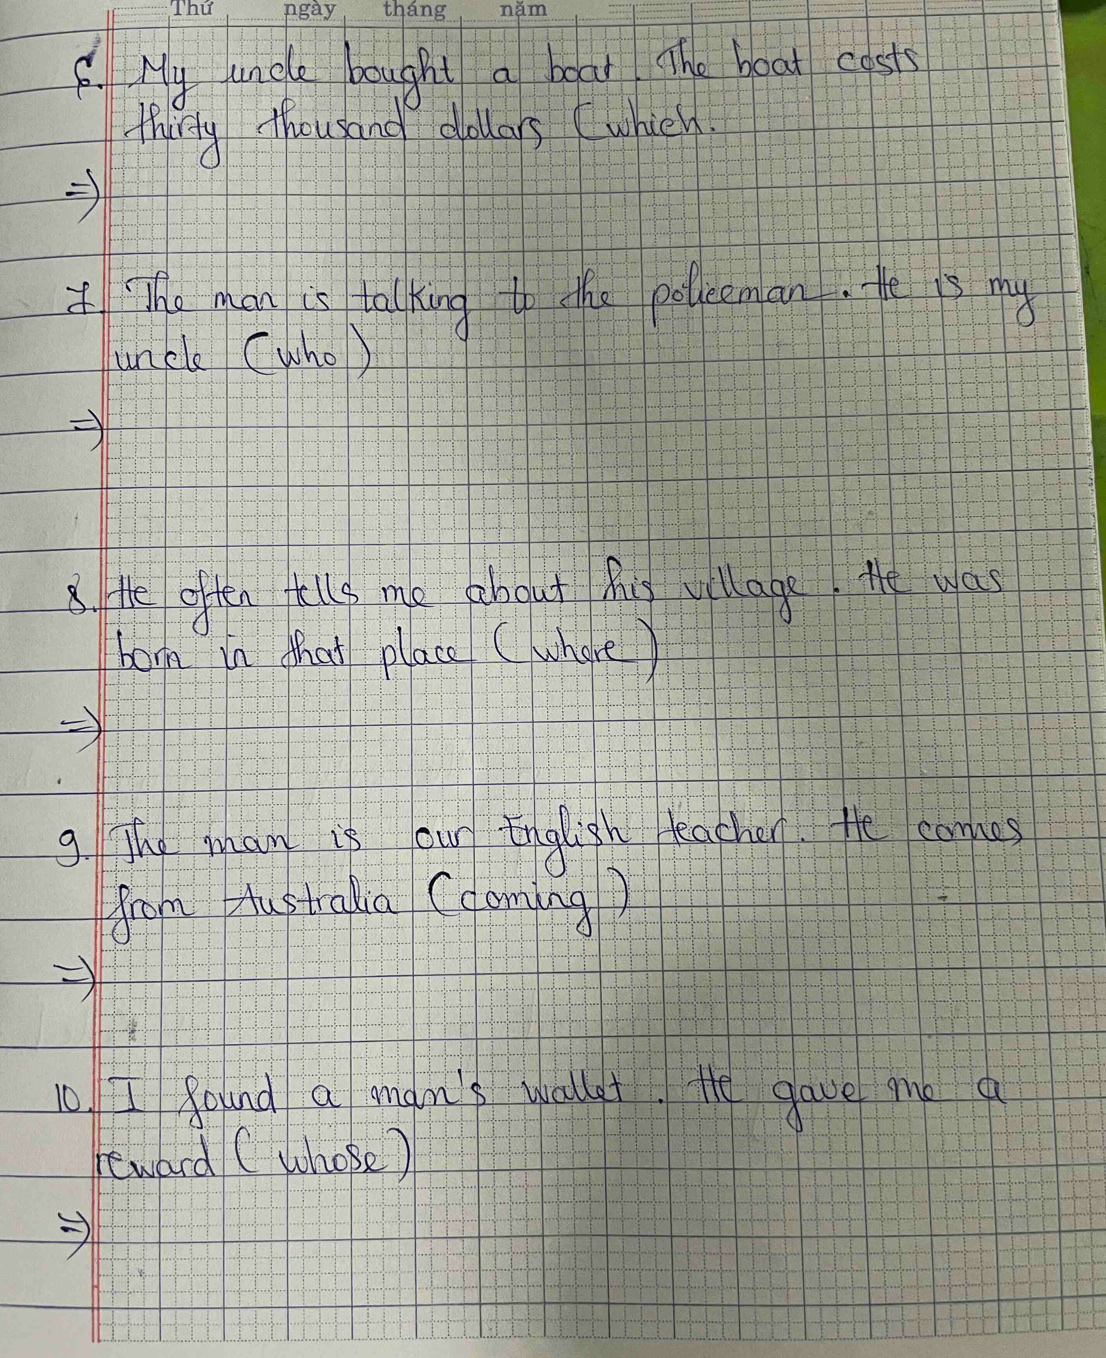 Thứ ngày tháng năm
6. My uncle bought a boat. The boat costs
thirty thousand dollars (which.
=>
7. The man is talking to the policeman. He is my
uncle (who)
=>
8. He often tells me about his village. He was
born in that place (where)
=>
9. The man is our English teacher. He comes
from Australia (coming)
=>
10. I found a man's wallet. He gave me a
reward (whose)
=>